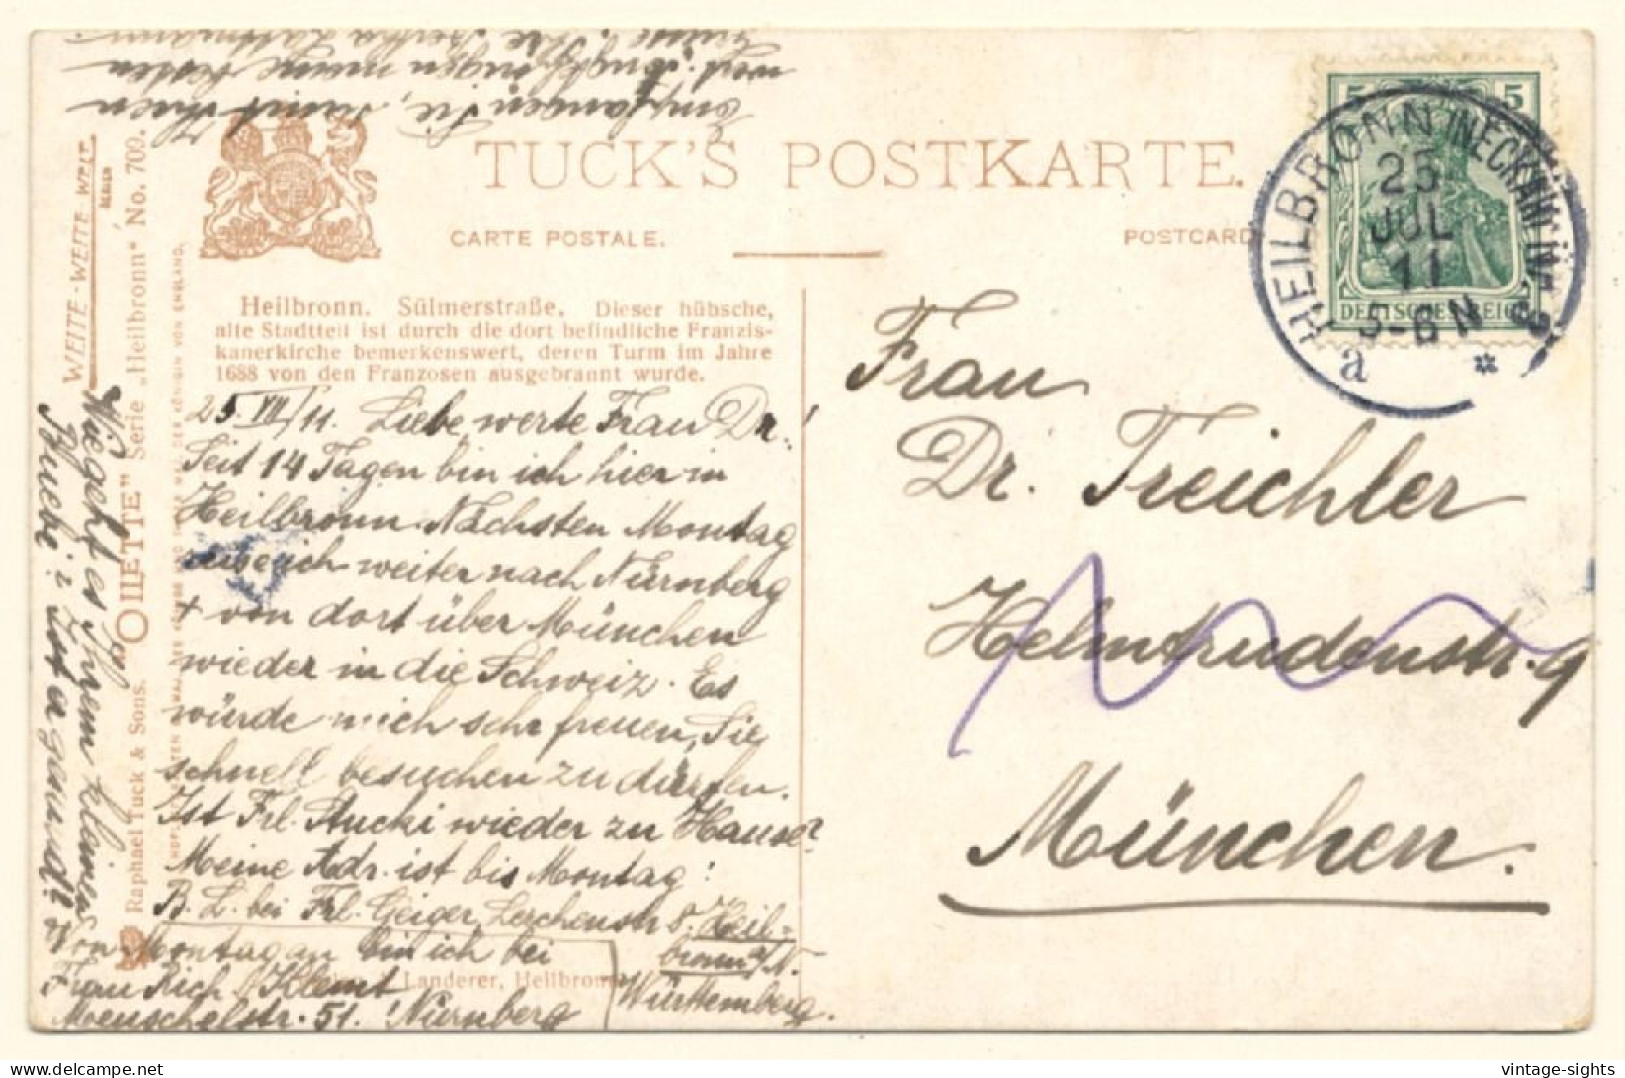 TUCK'S POSTKARTE.
CARTE POSTALE.
POSTCARD
5 5
DEUTSCHES REICH
HEILBRONN (NECKAR)
25
JUL
11
5-6 N
a *
WEITE-WEITE WELT
BERLIN
Heilbronn. Sülmerstraße. Dieser hübsche,
alte Stadtteil ist durch die dort befindliche Franzis-
kanerkirche bemerkenswert, deren Turm im Jahre
1688 von den Franzosen ausgebrannt wurde.
25. VII/11. Liebe werte Frau Dr.!
Seit 14 Tagen bin ich hier in
Heilbronn. Nächsten Montag
reise ich weiter nach Nürnberg
+ von dort über München
wieder in die Schweiz. Es
würde mich sehr freuen, Sie
schnell besuchen zu dürfen.
Ist Frl. Stucki wieder zu Hause?
Meine Adr. ist bis Montag:
B. L. bei Frl. Geiger, Lerchenstr 8. Heil-
bronn a/N.
Württemberg.
Von Montag an bin ich bei
Frau Rich. Klemt
Menschelstr. 51. Nürnberg
Landerer, Heilbronn
Wie geht es Ihrem kleinen
Buebe? Ist er gesund?
Empfangen Sie, samt Ihren
wert. Angehörigen meine besten
Grüsse. Ihre Bertha
Raphael Tuck & Sons. "OILETTE" Serie „Heilbronn" No. 709.
Frau
Dr. Treichler
Helmtrudenstr. 9
München.
vintage-sights